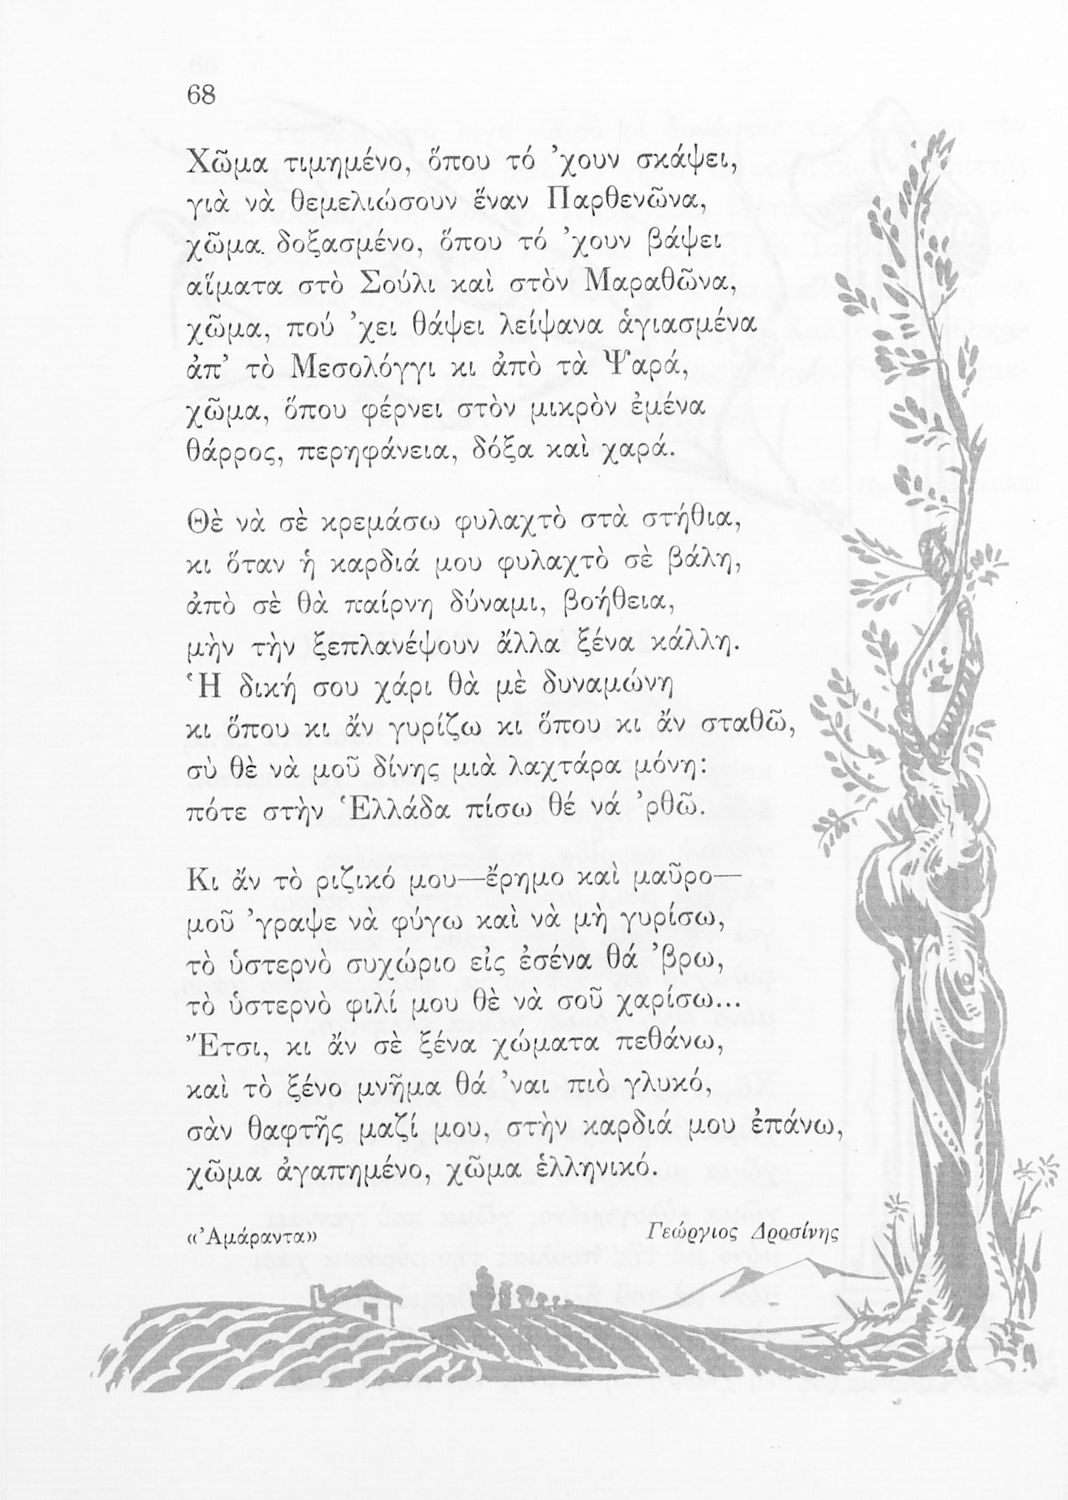 68
Χῶμα τιμημένο, ὅπου τό ’χουν σκάψει,
γιὰ νὰ θεμελιώσουν ἕναν Παρθενῶνα,
χῶμα. δοξασμένο, ὅπου τό ’χουν βάψει
αἵματα στὸ Σούλι καὶ στὸν Μαραθῶνα,
χῶμα, πού ’χει θάψει λείψανα ἁγιασμένα
ἀπ’ τὸ Μεσολόγγι κι ἀπὸ τὰ Ψαρά,
χῶμα, ὅπου φέρνει στὸν μικρὸν ἐμένα
θάρρος, περηφάνεια, δόξα καὶ χαρά.
Θὲ νὰ σὲ κρεμάσω φυλαχτὸ στὰ στήθια,
κι ὅταν ἡ καρδιά μου φυλαχτὸ σὲ βάλη,
ἀπὸ σὲ θὰ παίρνη δύναμι, βοήθεια,
μὴν τὴν ξεπλανέψουν ἄλλα ξένα κάλλη.
Ἡ δική σου χάρι θὰ μὲ δυναμώνη
κι ὅπου κι ἄν γυρίζω κι ὅπου κι ἄν σταθῶ,
σὺ θὲ νὰ μοῦ δίνης μιὰ λαχτάρα μόνη:
πότε στὴν Ἑλλάδα πίσω θέ νά ’ρθῶ.
Κι ἄν τὸ ριζικό μου—ἔρημο καὶ μαῦρο—
μοῦ ’γραψε νὰ φύγω καὶ νὰ μὴ γυρίσω,
τὸ ὑστερνὸ συχώριο εἰς ἐσένα θά ’βρω,
τὸ ὑστερνὸ φιλί μου θὲ νὰ σοῦ χαρίσω...
Ἔτσι, κι ἄν σὲ ξένα χώματα πεθάνω,
καὶ τὸ ξένο μνῆμα θά ’ναι πιὸ γλυκό,
σὰν θαφτῆς μαζί μου, στὴν καρδιά μου ἐπάνω,
χῶμα ἀγαπημένο, χῶμα ἑλληνικό.
«Ἀμάραντα» Γεώργιος Δροσίνης